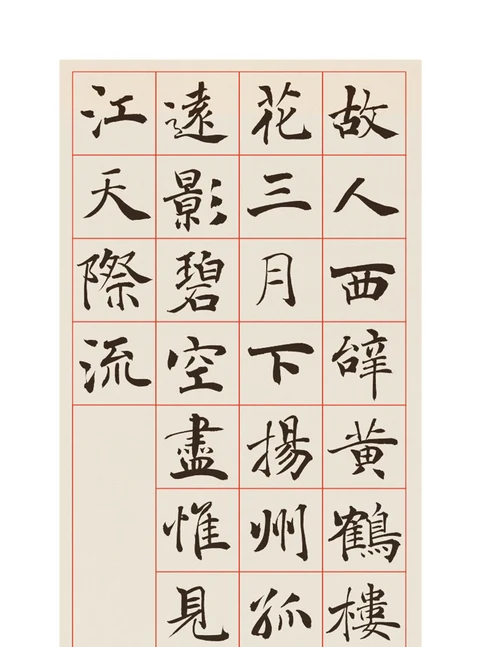 故人西辞黃鶴樓
花三月下揚州孤
遠影碧空盡惟見
江天際流